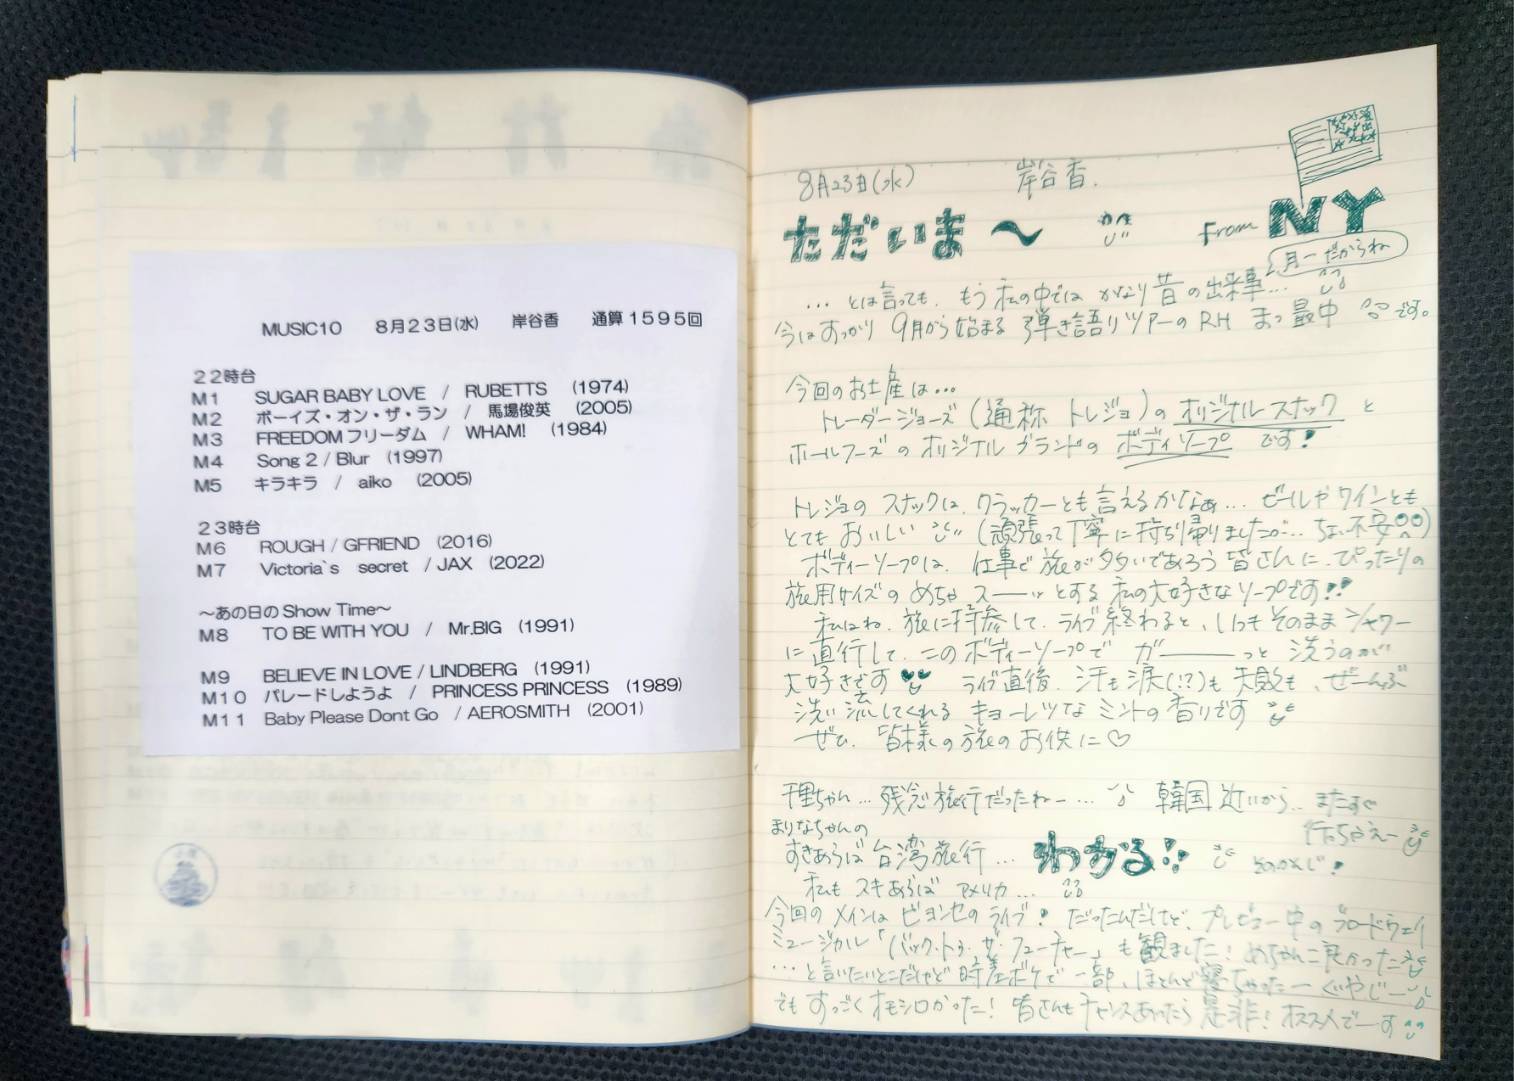 MUSIC10 8月23日(水) 岸谷香 通算1595回
22時台
M1 SUGAR BABY LOVE / RUBETTS (1974)
M2 ボーイズ・オン・ザ・ラン / 馬場俊英 (2005)
M3 FREEDOMフリーダム / WHAM! (1984)
M4 Song 2 / Blur (1997)
M5 キラキラ / aiko (2005)
23時台
M6 ROUGH / GFRIEND (2016)
M7 Victoria`s secret / JAX (2022)
～あの日のShow Time～
M8 TO BE WITH YOU / Mr.BIG (1991)
M9 BELIEVE IN LOVE / LINDBERG (1991)
M10 パレードしようよ / PRINCESS PRINCESS (1989)
M11 Baby Please Dont Go / AEROSMITH (2001)
8月23日(水) 岸谷香.
ただいま〜 from NY
月一だからね
...とは言っても、もう私の中では かなり昔の出来事...
今はすっかり 9月から始まる 弾き語りツアーのRH まっ最中 です。
今回のお土産は...
トレーダージョーズ(通称 トレジョ)の オリジナルスナック と
ホールフーズの オリジナルブランドの ボディソープ です!
トレジョの スナックは、クラッカーとも言えるかなぁ... ビールやワインとも
とても おいしい (頑張って丁寧に持ち帰りましたが... ちょい不安)
ボディーソープは、仕事で旅が多いであろう皆さんに、ぴったりの
旅用サイズの めちゃ スーーッとする 私の大好きなソープです!!
私はね、旅に持参して、ライブ終わると、いつもそのままシャワー
に直行して、このボディーソープで ガーーーっと 洗うのが
大好きです ライブ直後、汗も涙(!?)も失敗も、ぜーんぶ
洗い流してくれる キョーレツな ミントの香りです
ぜひ、皆様の旅のお供に♡
千里ちゃん... 残念旅行だったねー... 韓国近いから.. またすぐ
行っちゃえー
まりなちゃんの
すきあらば台湾旅行... わかる!!
私もスキあらば アメリカ...
今回のメインは ビヨンセのライブ! だったんだけど、プレビュー中のブロードウェイ
ミュージカル「バック・トゥ・ザ・フューチャー」も観ました! めちゃんこ良かった
...と言いたいとこだけど 時差ボケで 一部、ほとんど寝ちゃったー くやじー
でも すっごくオモシロかった! 皆さんもチャンスあったら是非! オススメでーす